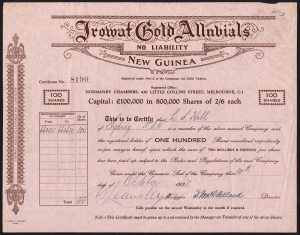 Irowat Gold Alluvials
NO LIABILITY
NEW GUINEA
Registered under Part 2 of the Companies Act 1928 Victoria
Certificate No. 8190
Registered Office:
NORMANBY CHAMBERS, 430 LITTLE COLLINS STREET, MELBOURNE, C.1
100 SHARES
Capital: £100,000 in 800,000 Shares of 2/6 each
100 SHARES
This is to Certify that
of Sydney is a member of the above-named Company and
the registered holder of ONE HUNDRED Shares numbered respectively
as per margin hereof, upon which the sum of TWO SHILLINGS & SIXPENCE per share
has been paid up subject to the Rules and Regulations of the said Company.
Given under the Common Seal of the Company this
day of October
Director
Manager
Calls payable on the second Wednesday in the month if required.
Total 100
N.B.—This Certificate must be given in and retained by the Manager on Transfer of any of the above Shares.